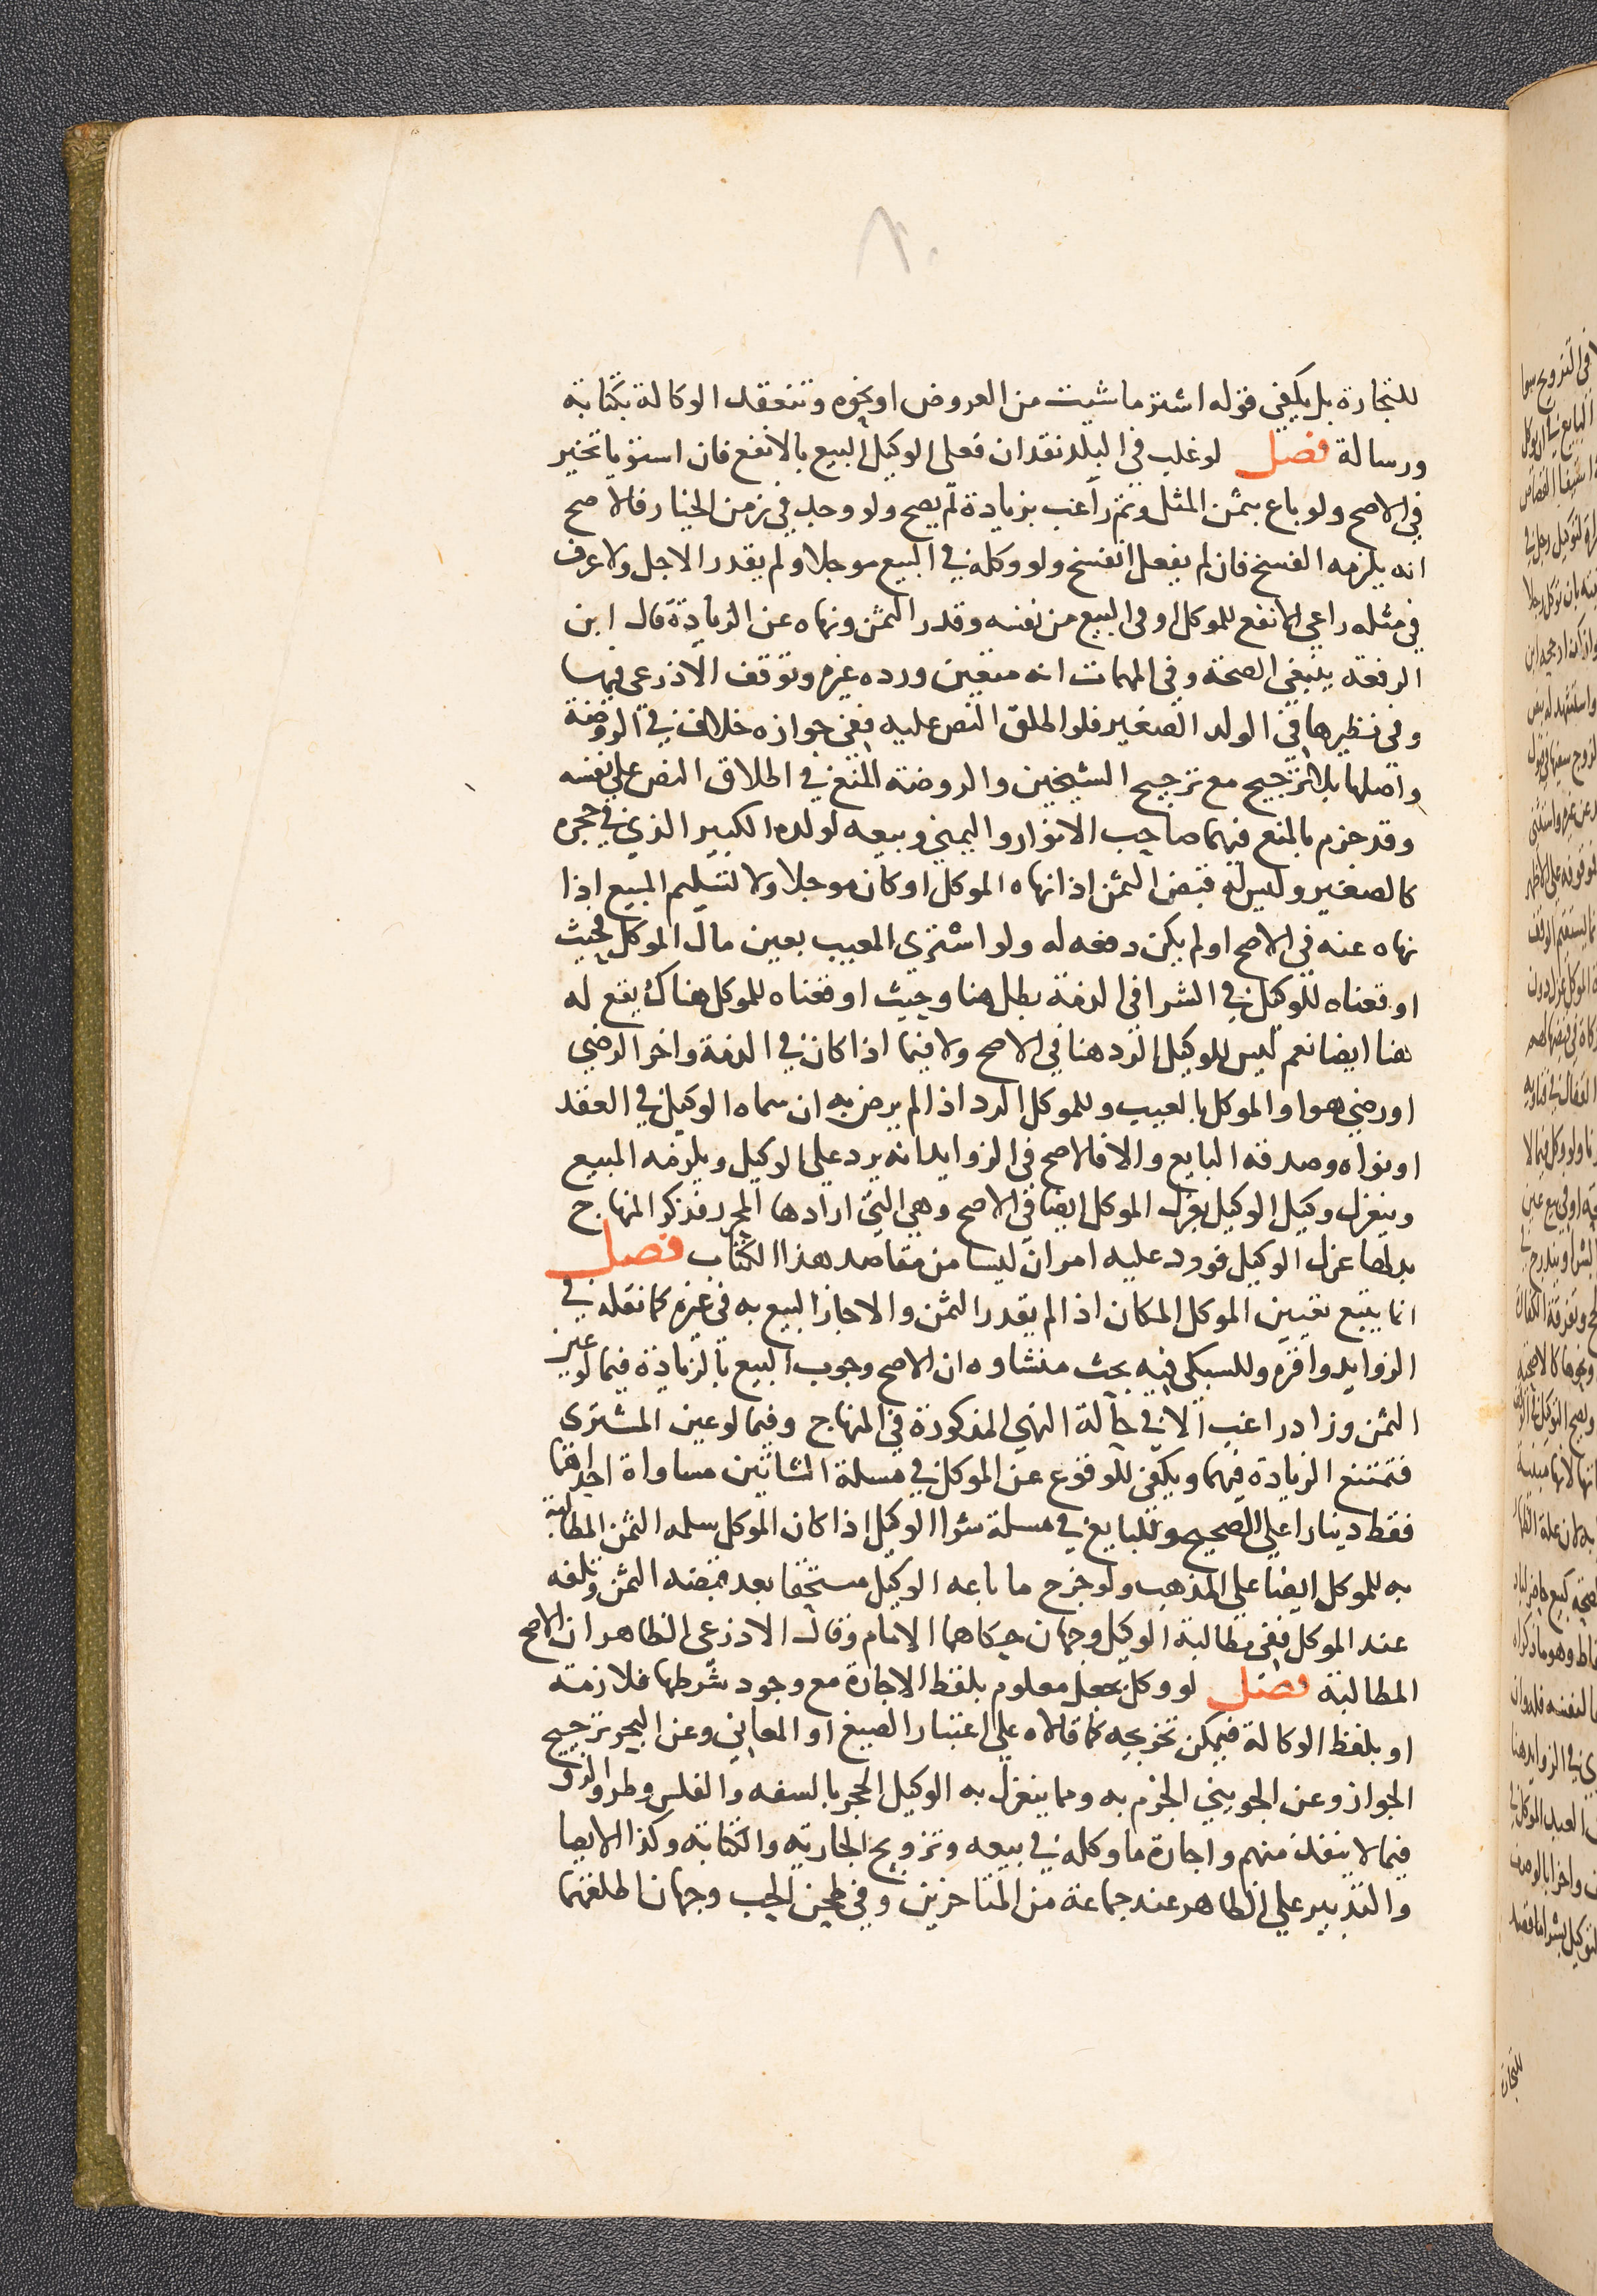 ٨٠
للتجارة بل يكفي قوله اشتر ما شيت من العروض او نحوه وتنعقد الوكالة بكتابة
ورسالة فصل لو غلب في البلد نقدان فعلى الوكيل البيع بالانفع فان استويا تخير
في الاصح ولو باع بثمن المثل وثم راغب بزيادة لم يصح ولو وجد في زمن الخيار فالاصح
انه يلزمه الفسخ فان لم يفعل انفسخ ولو وكله في البيع موجلا ولم يقدر الاجل ولا عرف
في مثله راعي الانفع للموكل او في البيع من نفسه وقدر الثمن ونهاه عن الزيادة قال ابن
الرفعة ينبغي الصحة وفي المهمات انه متعين ورده غيره وتوقف الاذرعي فيها
وفي نظيرها في الولد الصغير فلو اطلق النص عليه ففي جوازه خلاف في الروضة
واصلها بلا ترجيح مع ترجيح الشيخين والروضة المنع في اطلاق النص على نفسه
وقد جزم بالمنع فيهما صاحب الانوار واليمني وبيعه لولده الكبير الذي في حجره
كالصغير وليس له قبض الثمن اذا نهاه الموكل او كان موجلا ولا لتسليم المبيع اذا
نهاه عنه في الاصح او لم يكن دفعه له ولو اشتري المعيب بعين مال الموكل فحيث
اوقعناه للوكيل في الشرا في الذمة بطل هنا وحيث اوقعناه للموكل هناك يقع له
هنا ايضا نعم ليس للوكيل الرد هنا في الاصح ولا فيما اذا كان في الذمة واخر الرضي
او رضي هو او الموكل بالعيب وللموكل الرد اذا لم يرض به ان سماه الوكيل في العقد
او نواه وصدقه البايع والا فالاصح في الزوايد انه يرد على الوكيل ويلزمه المبيع
وينعزل وكيل الوكيل بعزل الموكل ايضا في الاصح وهي التي ارادها المحرر فذكر المنهاج
بدلها عزل الوكيل فورد عليه امران ليسا من مقاصد هذا الكتاب فصل
انما يتبع تعيين الموكل المكان اذا لم يقدر الثمن والا جاز البيع به في غيره كما نقله في
الزوايد واقره وللسبكي فيه بحث منشاوه ان الاصح وجوب البيع بالزيادة فيما لو عين
الثمن وزاد راغب الا في حالة النهي المذكورة في المنهاج وفيما لو عين المشتري
فتمتنع الزيادة فيهما ويكفي للوقوع عن الموكل في مسلة الشاتين مساواة احداهما
فقط دينارا على الصحيح وللبايع في مسلة شرا الوكيل اذا كان الموكل سلمه الثمن المطالبة
به للموكل ايضا على المذهب ولو خرج ما باعه الوكيل مستحقا بعد قبضه الثمن وتلفه
عند الموكل ففي مطالبة الوكيل وجهان حكاهما الامام وقال الاذرعي الظاهر ان الاصح
المطالبة فصل لو وكل بجعل معلوم بلفظ الاجارة مع وجود شرطها فلازمة
او بلفظ الوكالة فيمكن تخريجه كما قالاه على اعتبار الصيغ او المعاني وعن البحر ترجيح
الجواز وعن الجويني الجزم به ومما ينعزل به الوكيل الحجر بالسفه والفلس وطرو الرق
فيما لا ينفذ منهم واجارة ما وكله في بيعه وتزويج الجارية والكتابة وكذا الايصا
والتدبير على الظاهر عند جماعة من المتاخرين وفي طحن الحب وجهان اطلقهما
للتجارة